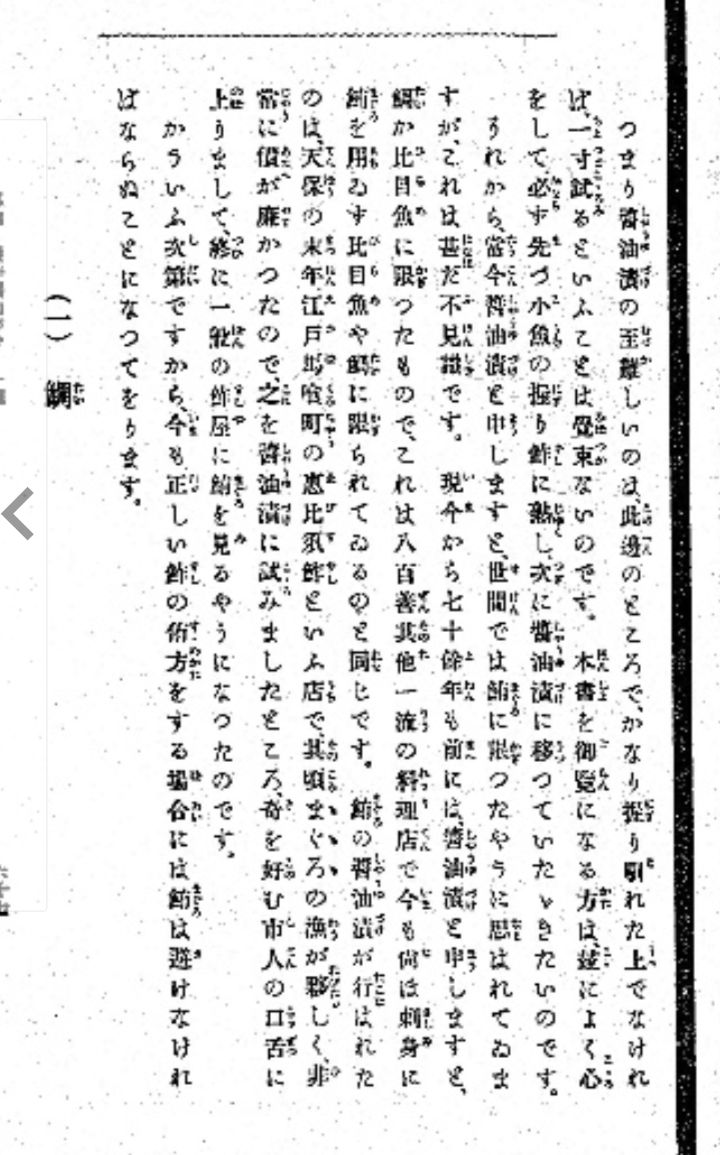 つまり醬油漬の至難しいのは、此邊のところで、かなり握り馴れた上でなけれ
ば、一寸試るといふことは覺束ないのです。本書を御覽になる方は、玆によく心
をして必ず先づ小魚の握り鮓に熟し、次に醬油漬に移つていたゞきたいのです。
それから、當今醬油漬と申しますと、世間では鮪に限つたやうに思はれてゐま
すが、これは甚だ不見識です。現今から七十餘年も前には、醬油漬と申しますと、
鯛か比目魚に限つたもので、これは八百善其他一流の料理店で今も尙ほ刺身に
鮪を用ゐず比目魚や鯛に限られてゐるのと同じです。鮪の醬油漬が行はれた
のは、天保の末年江戸馬喰町の惠比須鮓といふ店で、其頃まぐろの漁が夥しく、非
常に價が廉かつたので、之を醬油漬に試みましたところ、奇を好む市人の口舌に
上りまして、終に一般の鮓屋に鮪を見るやうになつたのです。
かういふ次第ですから、今も正しい鮓の作方をする場合には鮪は避けなけれ
ばならぬことになつてをります。
(一) 鯛